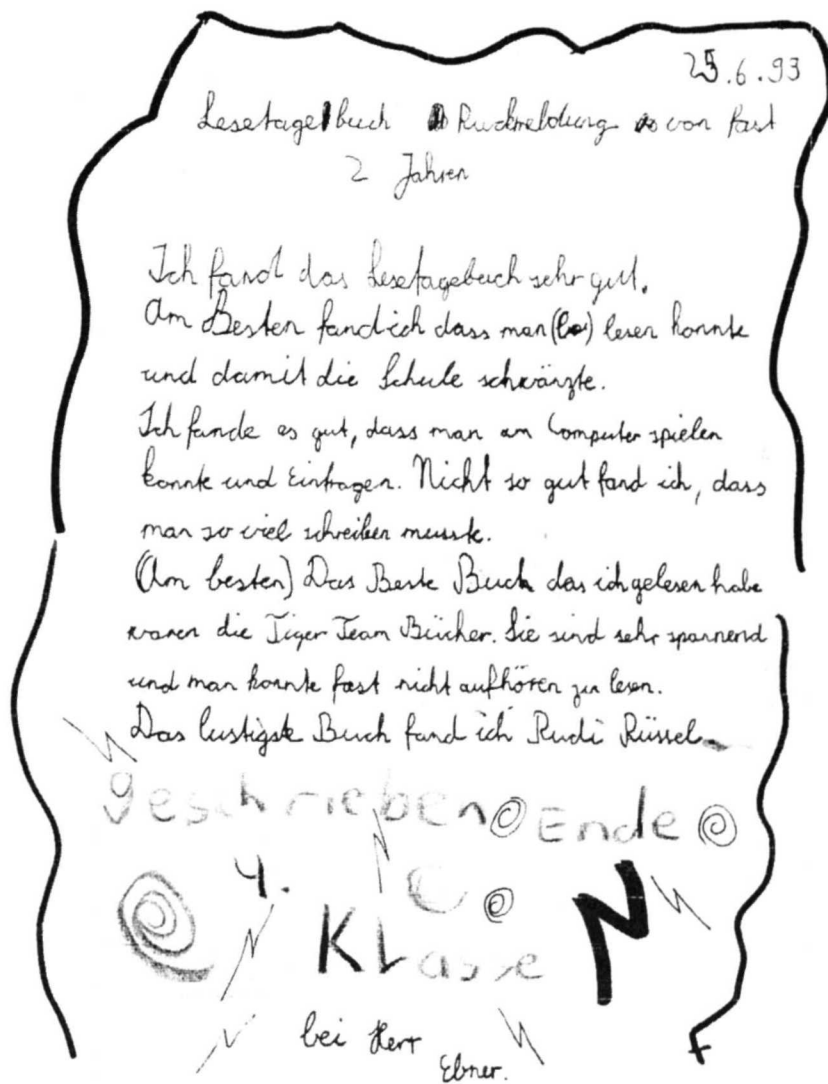 25.6.93
Lesetagebuch Rückmeldung von fast
2 Jahren
Ich fand das Lesetagebuch sehr gut.
Am Besten fand ich dass man (la) lesen konnte
und damit die Schule schwänzte.
Ich fande es gut, dass man am Computer spielen
konnte und Eintragen. Nicht so gut fand ich, dass
man so viel schreiben musste.
(Am besten) Das Beste Buch das ich gelesen habe
waren die Tiger Team Bücher. Sie sind sehr spannend
und man konnte fast nicht aufhören zu lesen.
Das lustigste Buch fand ich Rudi Rüssel
geschrieben Ende
4. C
Klasse
bei Herr
Ebner.